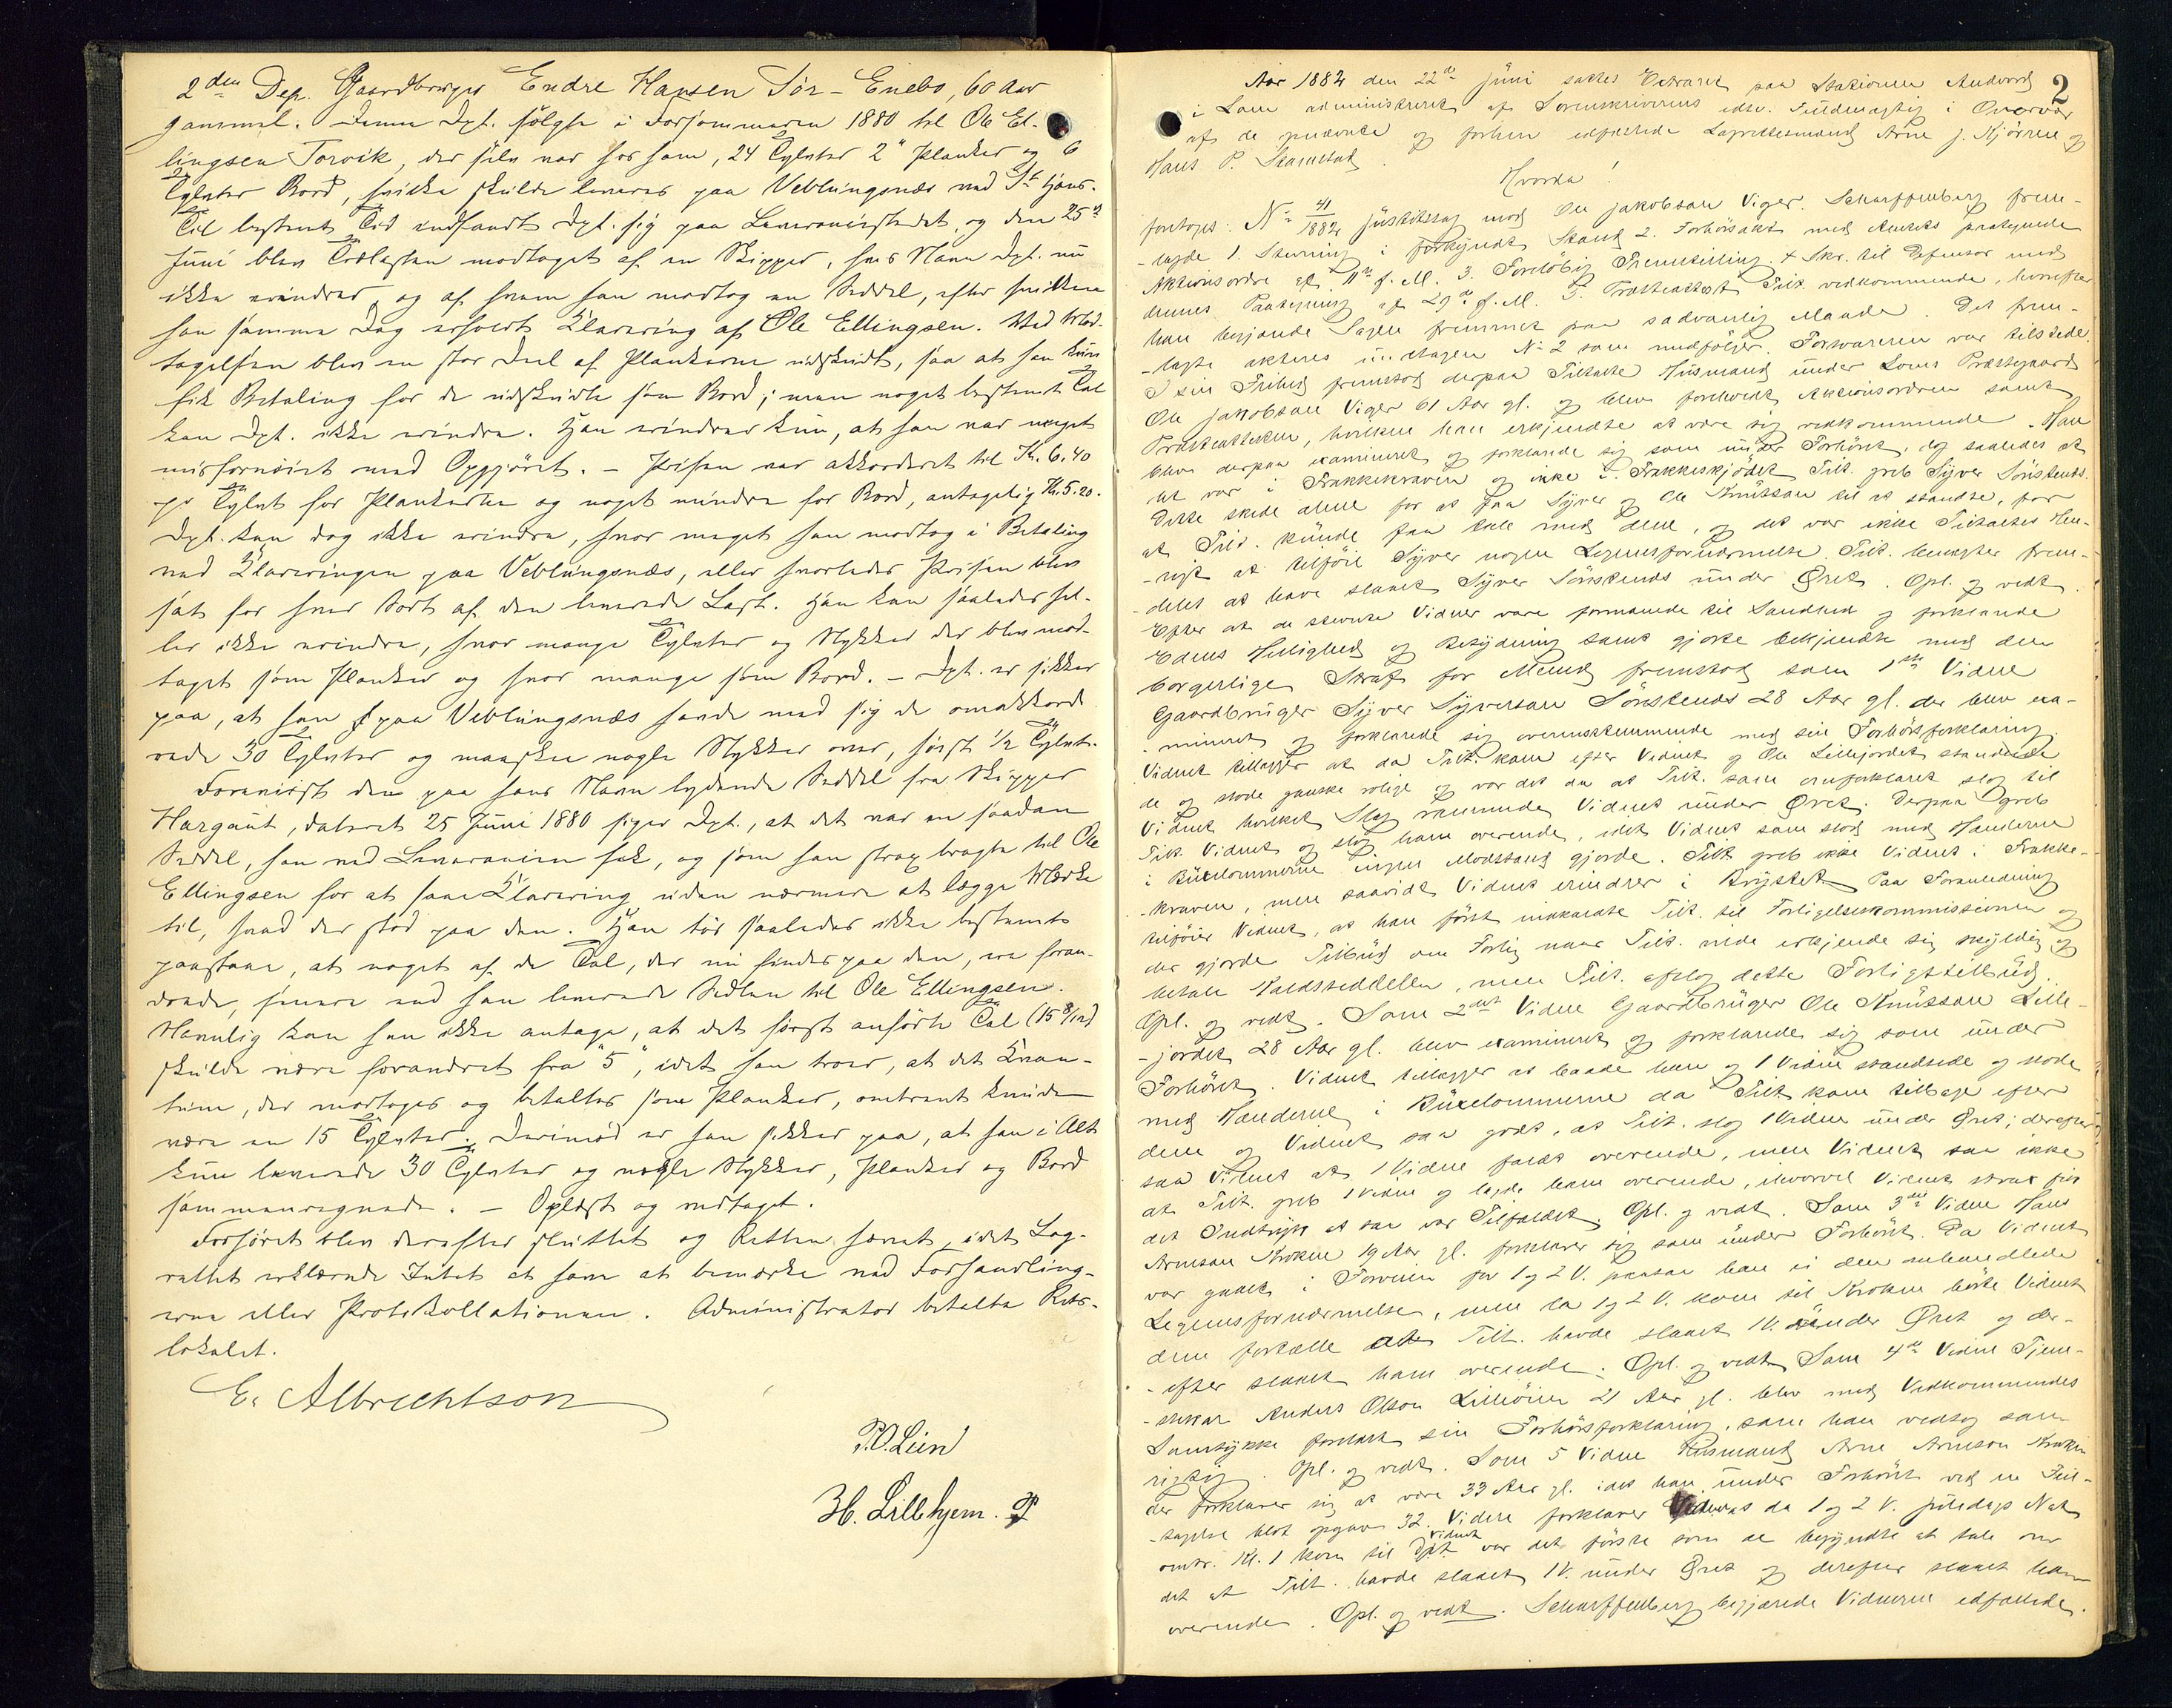 2den Dep. Gaardbruger Endre Hansen Sör-Enebo, 60 Aar
gammel. Denne Dpt. solgte i Forsommeren 1880 til Ole El-
lingsen Torvik, der selv var hos ham, 24 Tylvter 2" Planker og 6
Tylvter Bord, hvilke skulde leveres paa Veblungsnæs ved St. Hans-
Til bestemt Tid indfandt Dpt. sig paa Leverancestedet, og den 25de
Juni blev Trælasten modtaget af en Skipper, hvis Navn Dpt. nu
ikke erindrer, og af hvem han modtog en Seddel, efter hvilken
han samme Dag erholdt Klarering af Ole Ellingsen. Ved Mod-
tagelsen blev en stor Deel af Plankerne udskudt, saa at han kun
fik Betaling for de udskudte som Bord; men noget bestemt Tal
kan Dpt. ikke erindre. Han erindrer kun, at han var meget
misfornöiet med Opgjöret. – Prisen var akkorderet til Kr. 6.40
pr Tylvt for Plankerne og noget mindre for Bord, antagelig Kr. 5.20.
Dpt. kan dog ikke erindre, hvor meget han modtog i Betaling
ved Klareringen paa Veblungsnæs, eller hvorledes Prisen blev
sat for hver Sort af den leverede Last. Han kan saaledes hel-
ler ikke erindre, hvor mange Tylvter og Stykker der blev mod-
taget som Planker og hvor mange som Bord. – Dpt. er sikker
paa, at han paa Veblungsnæs havde med sig de omakkorde-
rede 30 Tylvter og maaske nogle Stykker over, höist 1/2 Tylvt.
Foreviist den paa hans Navn lydende Seddel fra Skipper
Hargaut, dateret 25 Juni 1880 siger Dpt., at det var en saadan
Seddel, han ved Leverancen fik, og som han strax bragte til Ole
Ellingsen for at faae Klarering uden nærmere at lægge Mærke
til, hvad der stod paa den. Han tör saaledes ikke bestemt
paastaae, at noget af de Tal, der nu findes paa den, ere foran-
drede, siden han leverede Sedlen til Ole Ellingsen.
Navnlig kan han ikke antage, at det först anförte Tal (15 8/12)
skulde være forandret fra "5", idet han troer, at det Kvan-
tum, der modtoges og betaltes som Planker, omtrent kunde
være en 15 Tylvter. Derimod er han sikker paa, at han i Alt
kun leverede 30 Tylvter og nogle Stykker, Planker og Bord
sammenregnede. – Oplæst og vedtaget.
Forhöret blev derefter sluttet og Retten hævet, idet Lag-
rettet erklærede Intet at have at bemærke ved Forhandling-
erne eller Protokollationen. Administrator betalte Rets-
lokalet.
E. Albrechtson
P.O. Lien
H. Lillehjem.
2
Aar 1884 den 22de Juni sattes Extraret paa Stationen Andvord
i Lom administreret af Sorenskriverens edsv. Fuldmægtig i Overvær
af de prævnte og forhen edfæstede Lagrettesmænd Arne J. Kjörren og
Hans P. Skamstad.
Hvorda!
foretoges: No 41/1884 Justitssag mod Ole Jakobsen Viger. Scharffenberg frem-
-lagde 1. Stevning i forkyndt Stand 2. Forhörsakt med Amtets paategnede
Aktionsordre af 11te f. M. 3. Foreløbig Fremstilling. 4 Skr. til Defensor med
dennes Paategning af 29de f. M. 5. Præsteattest Tilt. vedkommende, hvorefter
han begjærede Sagen fremmet paa sædvanlig Maade. Det frem-
-lagte akteres undtagen No 2 som medfölger. Forsvareren var tilstede.
I sin Frihed fremstod derpaa Tiltalte Husmand under Loms Præstegaard
Ole Jakobsen Viger 61 Aar gl. og blev forelæst Aktionsordren samt
Præsteattesten, hvilken han erkjendte at være sig vedkommende. Han
blev derpaa examineret og forklarede sig som under Forhöret, dog saaledes at
det var i Frakkekraven og ikke i Frakkeskjödet Tilt. greb Syver Sönstends.
Dette skede alene for at faa Syver og Ole Knutson til at standse, for
at Tilt. kunde faa tale med dem, og det var ikke Tiltaltes Hen-
-sigt at tilföie Syver nogen Legemsfornærmelse. Tilt. benegter frem-
-deles at have slaaet Syver Sönstends under Öret. Opl. og vedt.
Efter at de stevnte Vidner vare formanede til Sandhed og forklarede
Edens Hellighed og Betydning samt gjorte bekjendte med den
borgerlige Straf for Meened fremstod som 1ste Vidne
Gaardbruger Syver Syversen Sönstends 28 Aar gl. der blev exa-
-mineret og forklarede sig overensstemmende med sin Forhörsforklaring.
Vidnet tillægger at da Tilt. kom efter Vidnet og Ole Lillejordet standsede
de og stode ganske rolige og var det da at Tilt. som omforklaret slog til
Vidnet hvilket Slag rammede Vidnet under Öret. Derpaa greb
Tilt. Vidnet og slog ham overende, idet Vidnet som stod med Hænderne
i Buxelommerne ingen Modstand gjorde. Tilt. greb ikke Vidnet i Frakke-
-kraven, men saavidt Vidnet erindrer i Brystet. Paa Foranledning
tilföier Vidnet, at han först indkaldte Tilt. til Forligelseskommissionen og
der gjorde Tilbud om Forlig naar Tilt. vilde erkjende sig skyldig og
betale Kaldsseddelen, men Tilt. afslog dette Forligstilbud.
Opl. og vedt. Som 2det Vidne Gaardbruger Ole Knutson Lille-
-jordet 28 Aar gl. blev examineret og forklarede sig som under
Forhöret. Vidnet tillægger at baade han og 1 Vidne standsede og stode
med Hænderne i Buxelommerne da Tilt. kom tilbage efter
dem og Vidnet saa godt, at Tilt. slog 1 Vidne under Öret; derefter
saa Vidnet at 1 Vidne faldt overende, men Vidnet saa ikke
at Tilt. greb 1 Vidne og lagde ham overende, ihvorvel Vidnet strax fik
det Indtryk at saa var Tilfældet. Opl. og vedt. Som 3de Vidne Hans
Arneson Kroken 19 Aar gl. forklarer sig som under Forhöret. Da Vidnet
var gaaet i Forveien for 1 og 2 V. paasaa han ei den omhandlede
Legemsfornærmelse, men da 1 og 2 V. kom til Kroken hörte Vidnet
dem fortælle at Tilt. havde slaaet 1 V. under Öret og der-
-efter slaaet ham overende. Opl. og vedt. Som 4de Vidne Tjene-
-stekar Anders Olson Lilleöien 21 Aar gl. blev med Vedkommendes
Samtykke forelæst sin Forhörsforklaring, som han vedtog som
rigtig. Opl. og vedt. Som 5 Vidne Husmand Arne Arneson Kroken
der forklarer sig at være 33 Aar gl. idet han under Forhöret ved en Feil-
-tagelse blot opgav 32. Videre forklarer Vidnet at da 1 og 2 V. Juledags Nat
omtr. Kl. 1 kom til Vidnet var det förste som de begyndte at tale om
det at Tilt. havde slaaet 1 V. under Öret og derefter slaaet ham
overende. Opl. og vedt. Scharffenberg begjærede Vidnerne edfæstede.